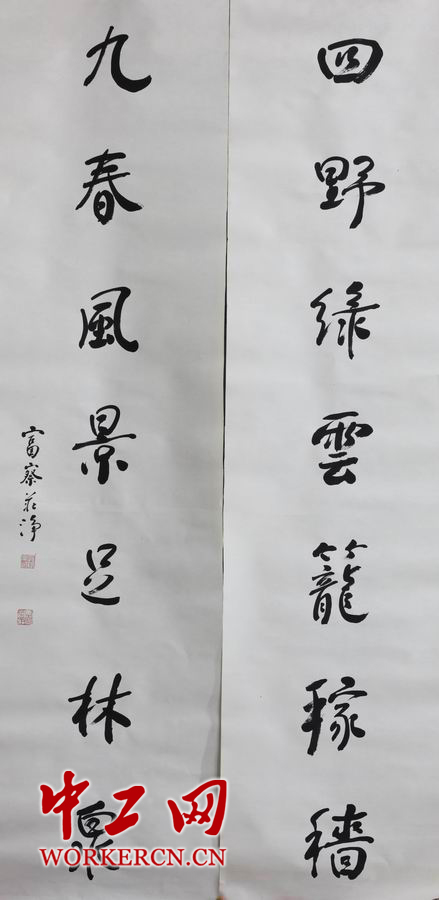 四野綠雲籠稼穡
九春風景足林泉
富察莊淨
中工网
WORKERCN.CN